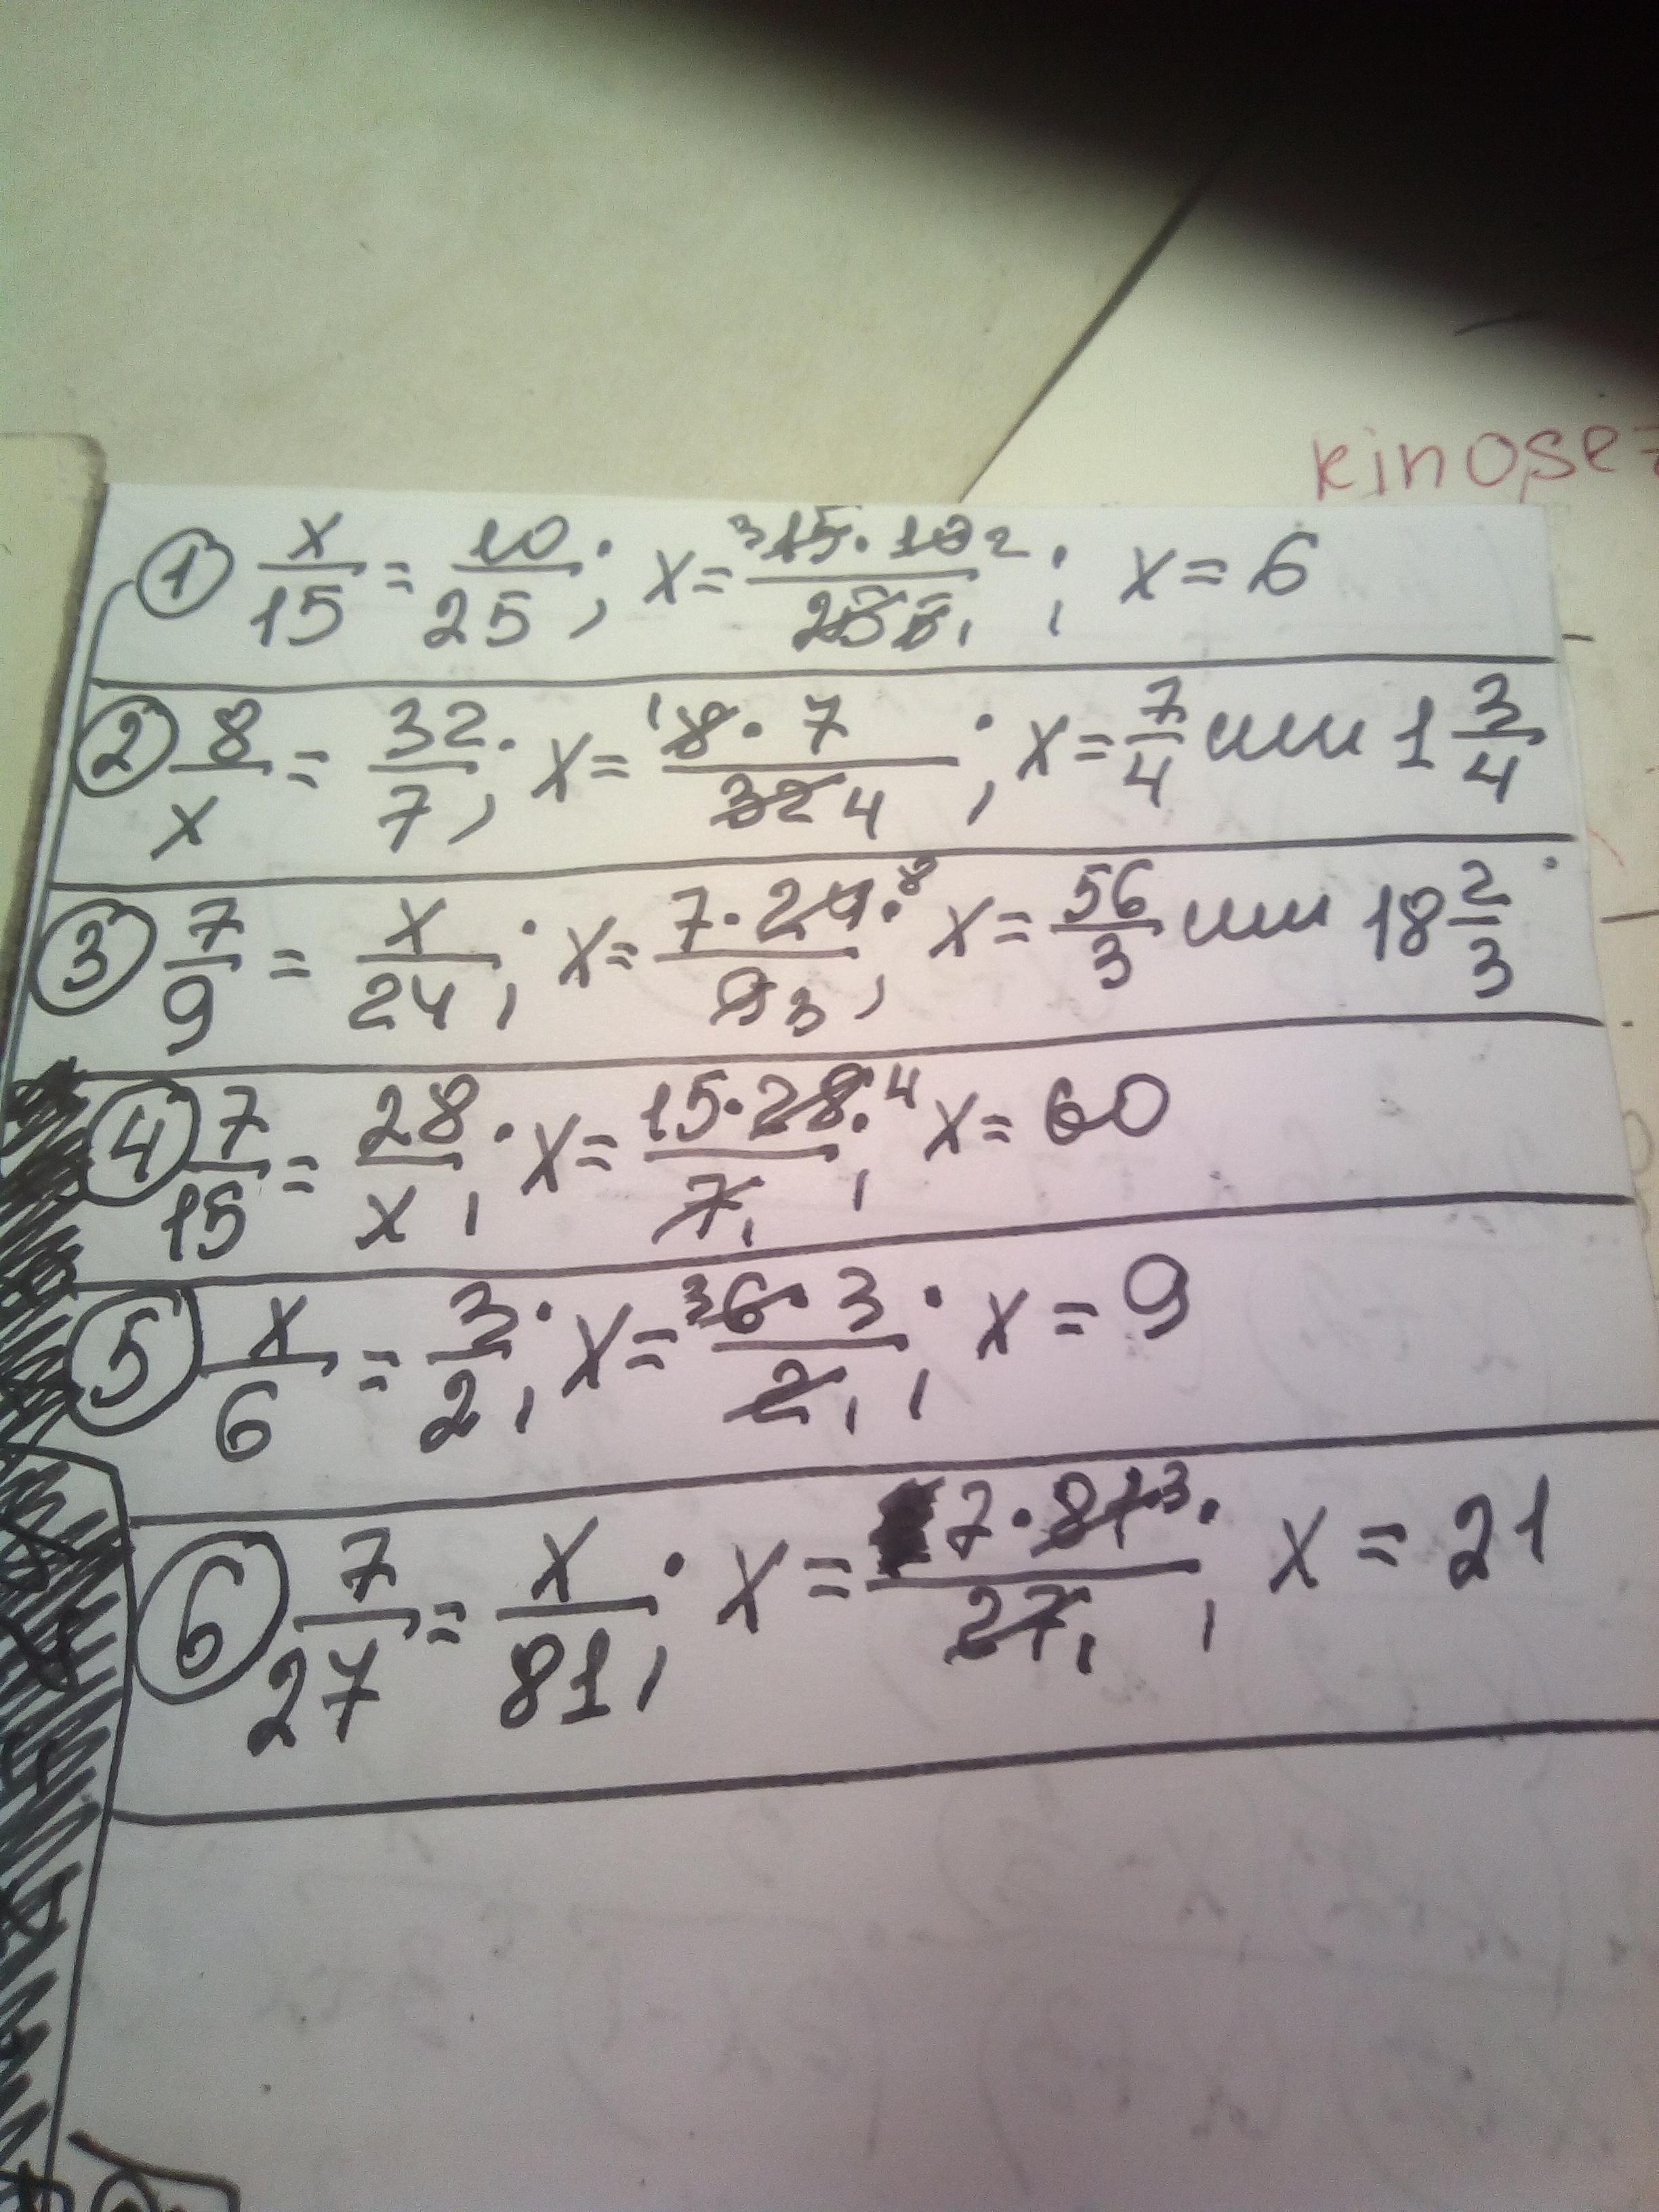 kinose
① x/15 = 10/25; x = ³15·10²/25 5; x = 6
② 8/x = 32/7; x = ¹8·7/32 4; x = 7/4 или 1 3/4
③ 7/9 = x/24; x = 7·24⁸/9 3; x = 56/3 или 18 2/3
④ 7/15 = 28/x; x = 15·28⁴/7 1; x = 60
⑤ x/6 = 3/2; x = ³6·3/2 1; x = 9
⑥ 7/27 = x/81; x = 7·81³/27 1; x = 21